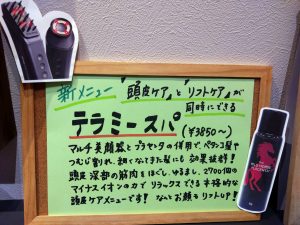 新メニュー 「頭皮ケア」と「リフトケア」が
同時にできる
テラミースパ (¥3850〜)
マルチ美顔器とプラセンタの併用で、ペタンコ髪や
つむじ割れ、細くなてきた髪にも効果抜群!
頭皮深部の筋肉をほぐし、ゆるまし、2700個の
マイナスイオンの力でリラックスできる本格的な
頭皮ケアメニューです! なんとお顔もリフトUP!
PLACENTA